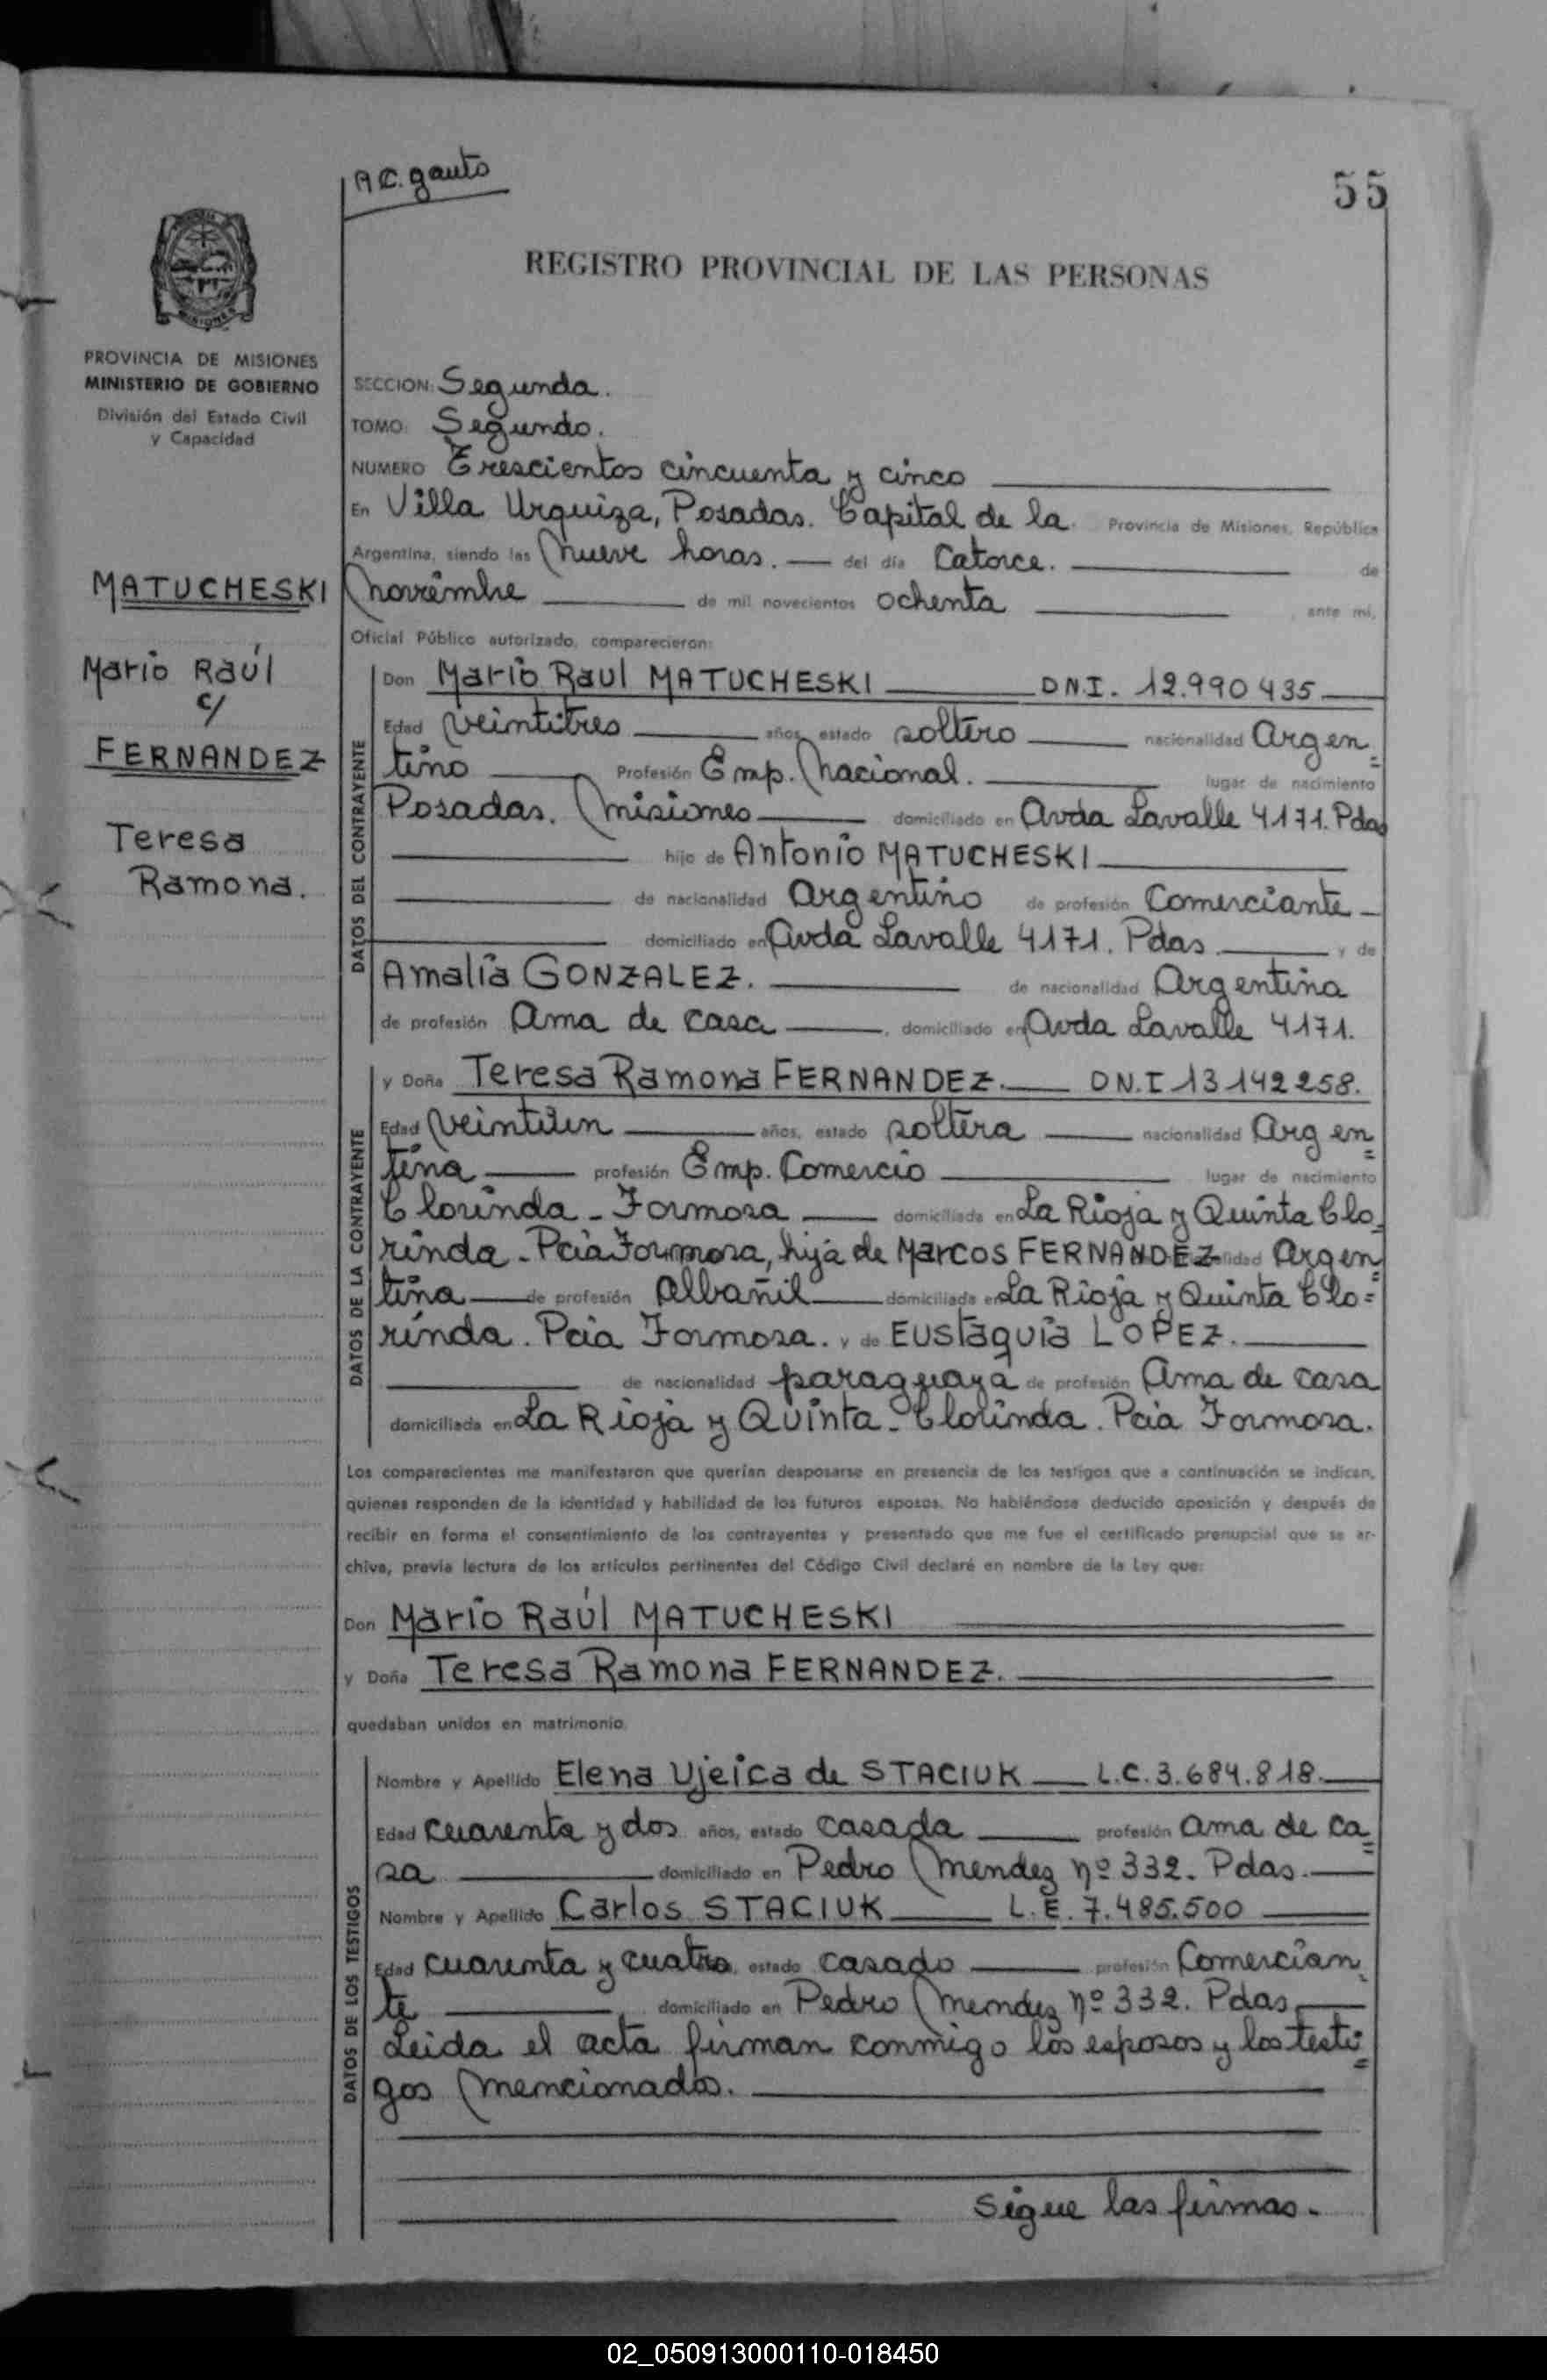 A.C. gauto
55
REGISTRO PROVINCIAL DE LAS PERSONAS
MISIONES
PROVINCIA DE MISIONES
MINISTERIO DE GOBIERNO
División del Estado Civil
y Capacidad
MATUCHESKI
Mario Raúl
c/
FERNANDEZ
Teresa
Ramona.
SECCION: Segunda.
TOMO: Segundo.
NUMERO Trescientos cincuenta y cinco
En Villa Urquiza, Posadas. Capital de la Provincia de Misiones, República
Argentina, siendo las Nueve horas. del día Catorce. de
Noviembre de mil novecientos ochenta , ante mí,
Oficial Público autorizado, comparecieron:
DATOS DEL CONTRAYENTE
Don Mario Raul MATUCHESKI DN.I. 12.990435
Edad Veintitres años, estado soltero nacionalidad Argen=
tino Profesión Emp. Nacional. lugar de nacimiento
Posadas. Misiones domiciliado en Avda Lavalle 4171. Pdas
hijo de Antonio MATUCHESKI
de nacionalidad Argentino de profesión Comerciante
domiciliado en Avda Lavalle 4171. Pdas. y de
Amalia GONZALEZ. de nacionalidad Argentina
de profesión Ama de casa , domiciliado en Avda Lavalle 4171.
DATOS DE LA CONTRAYENTE
y Doña Teresa Ramona FERNANDEZ. DN.I 13142258.
Edad Veintiun años, estado soltera nacionalidad Argen=
tina profesión Emp. Comercio lugar de nacimiento
Clorinda - Formosa domiciliada en La Rioja y Quinta Clo=
rinda - Pcia Formosa, hija de Marcos FERNANDEZ Argen=
tina de profesión Albañil domiciliada en La Rioja y Quinta Clo=
rinda. Pcia Formosa. y de EUSTaquia LOPEZ.
de nacionalidad paraguaya de profesión Ama de casa
domiciliada en La Rioja y Quinta - Clorinda. Pcia Formosa.
Los comparecientes me manifestaron que querían desposarse en presencia de los testigos que a continuación se indican,
quienes responden de la identidad y habilidad de los futuros esposos. No habiéndose deducido oposición y después de
recibir en forma el consentimiento de los contrayentes y presentado que me fue el certificado prenupcial que se ar-
chiva, previa lectura de los artículos pertinentes del Código Civil declaré en nombre de la Ley que:
Don Mario Raúl MATUCHESKI
y Doña Teresa Ramona FERNANDEZ.
quedaban unidos en matrimonio.
DATOS DE LOS TESTIGOS
Nombre y Apellido Elena Ujeica de STACIUK L.C. 3.684.818.
Edad cuarenta y dos años, estado casada profesión ama de ca=
sa domiciliado en Pedro Mendez nº 332. Pdas.
Nombre y Apellido Carlos STACIUK L.E. 7.485.500
Edad cuarenta y cuatro estado casado profesión Comercian
te domiciliado en Pedro Mendez nº 332. Pdas.
Leida el acta firman conmigo los esposos y los testi=
gos mencionados.
Sigue las firmas.
02_050913000110-018450